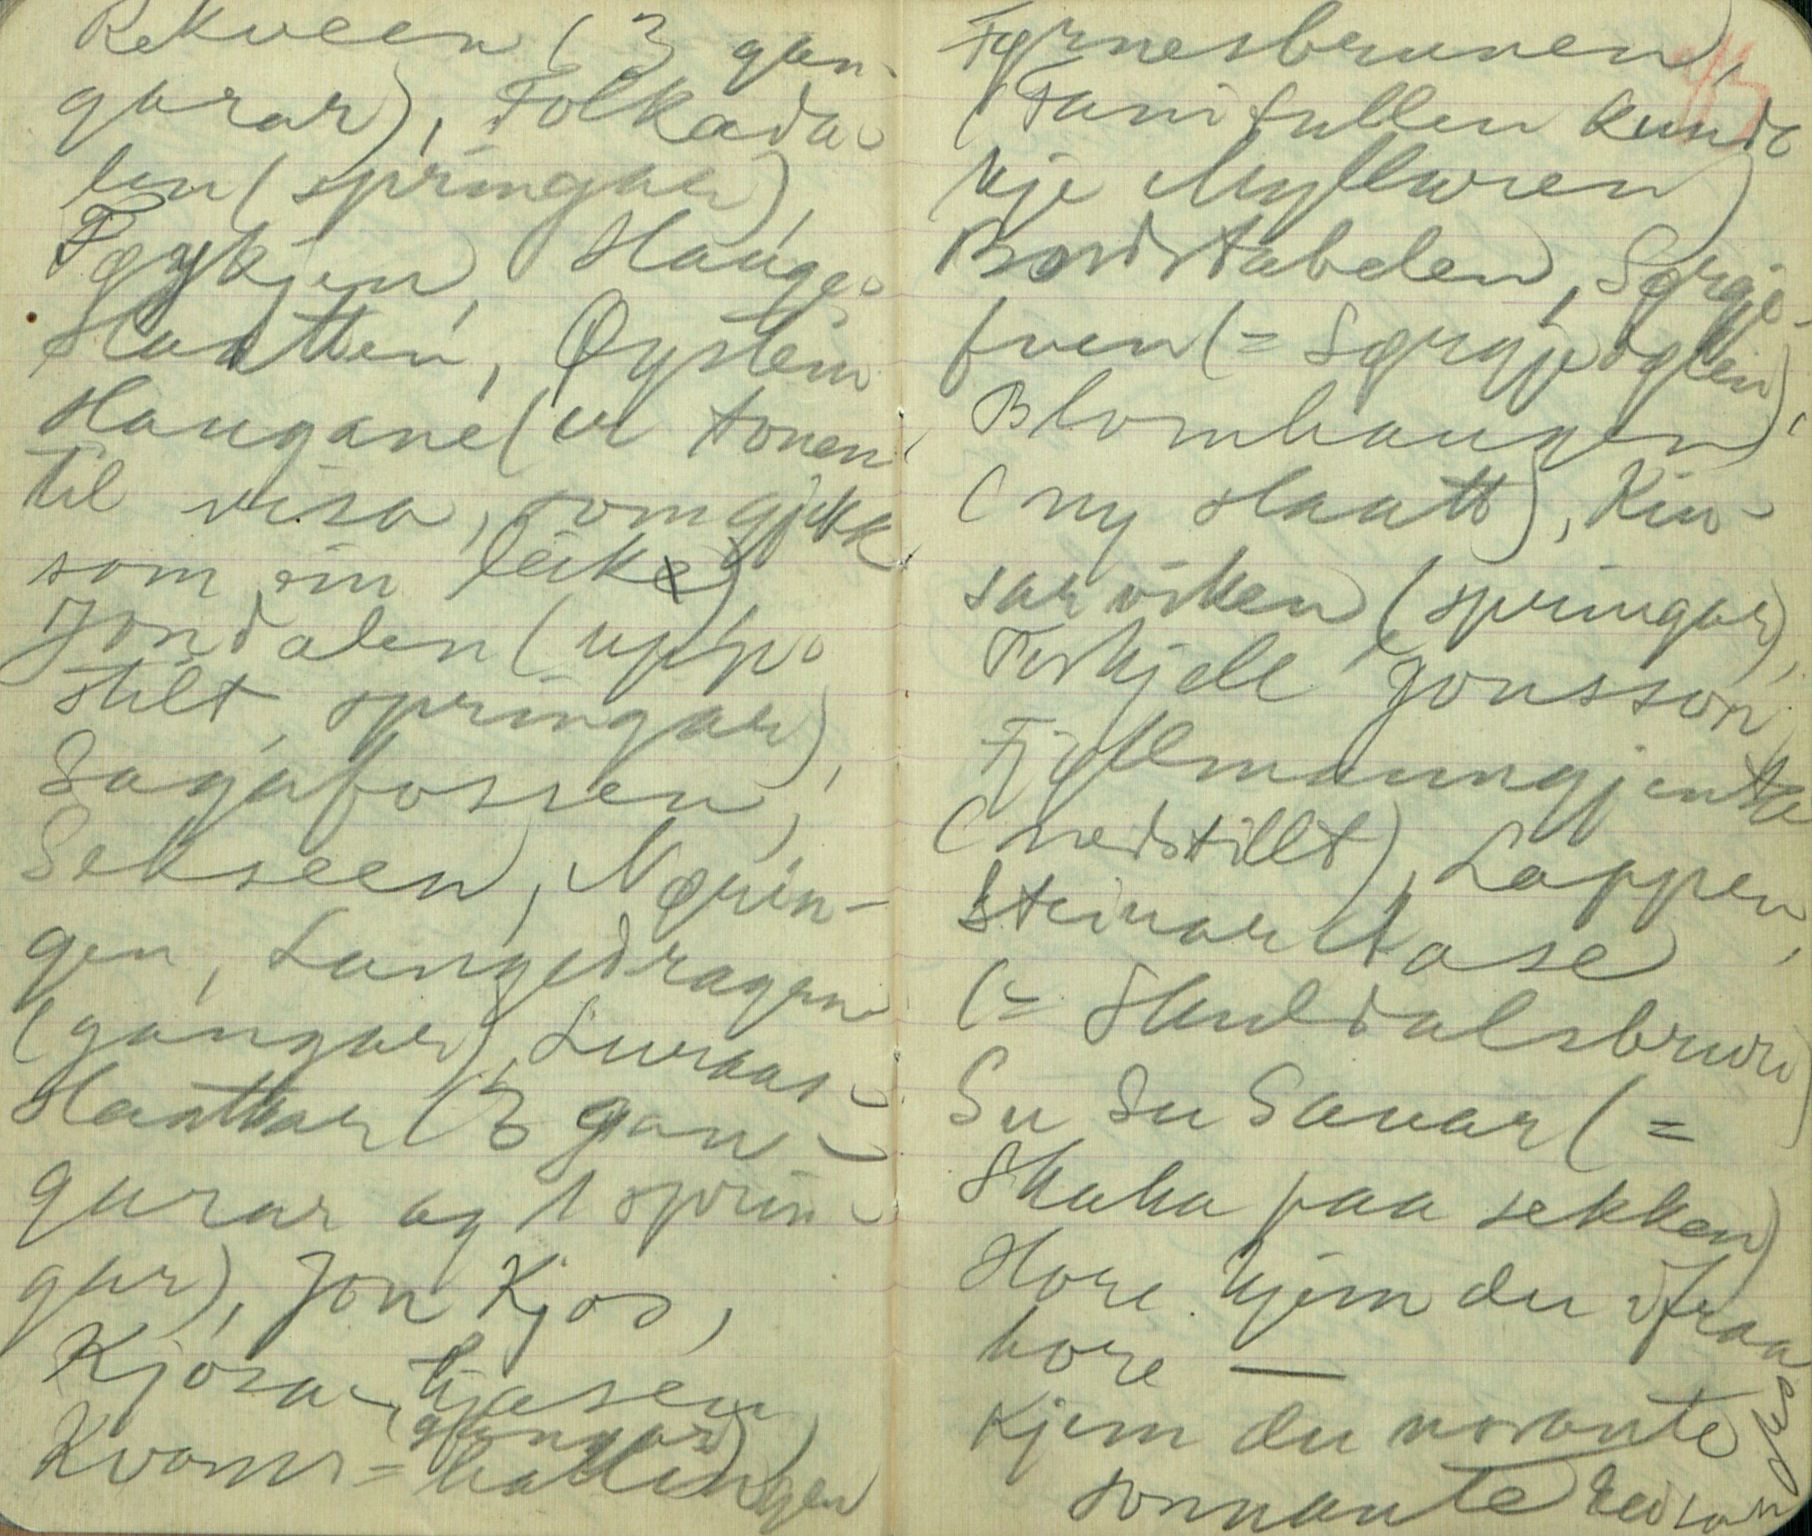 Rekveen (3 gan-
garar), Folkeda-
len (springar),
Fykjen, Hauge-
slaatten, Øystein
Haugane (er tonen
til visa, som gjekk
som ein leik)
Jondalen (upp-
stilt springar),
Sagafossen,
Sekseen, Nøring-
gen, Langedragen
(gangar), Luraas-
slaattar (3 gan-
garar og 1 sprin-
gar), Jon Kjos,
Kjosa-hjasen,
(gangar)
Kvams-hallingen
Fyrnesbrunen,
93
(Fanitullen kunde
kje Myllaren)
Bordstabelen, Sørgje-
fuen (= Sørgjeøglen),
Blomhaugen
(ny slaatt), Kin-
sarviken (springar),
Torkjell Jonsson
Fjøllmanngjenta
(nedstillt), Lappen,
Steinar Aase
(= Skuldalsbruri)
Su Su Savar (=
Skaka paa sekken)
Hore kjem du ifraa
hore —
Kjem du norante
sonnante